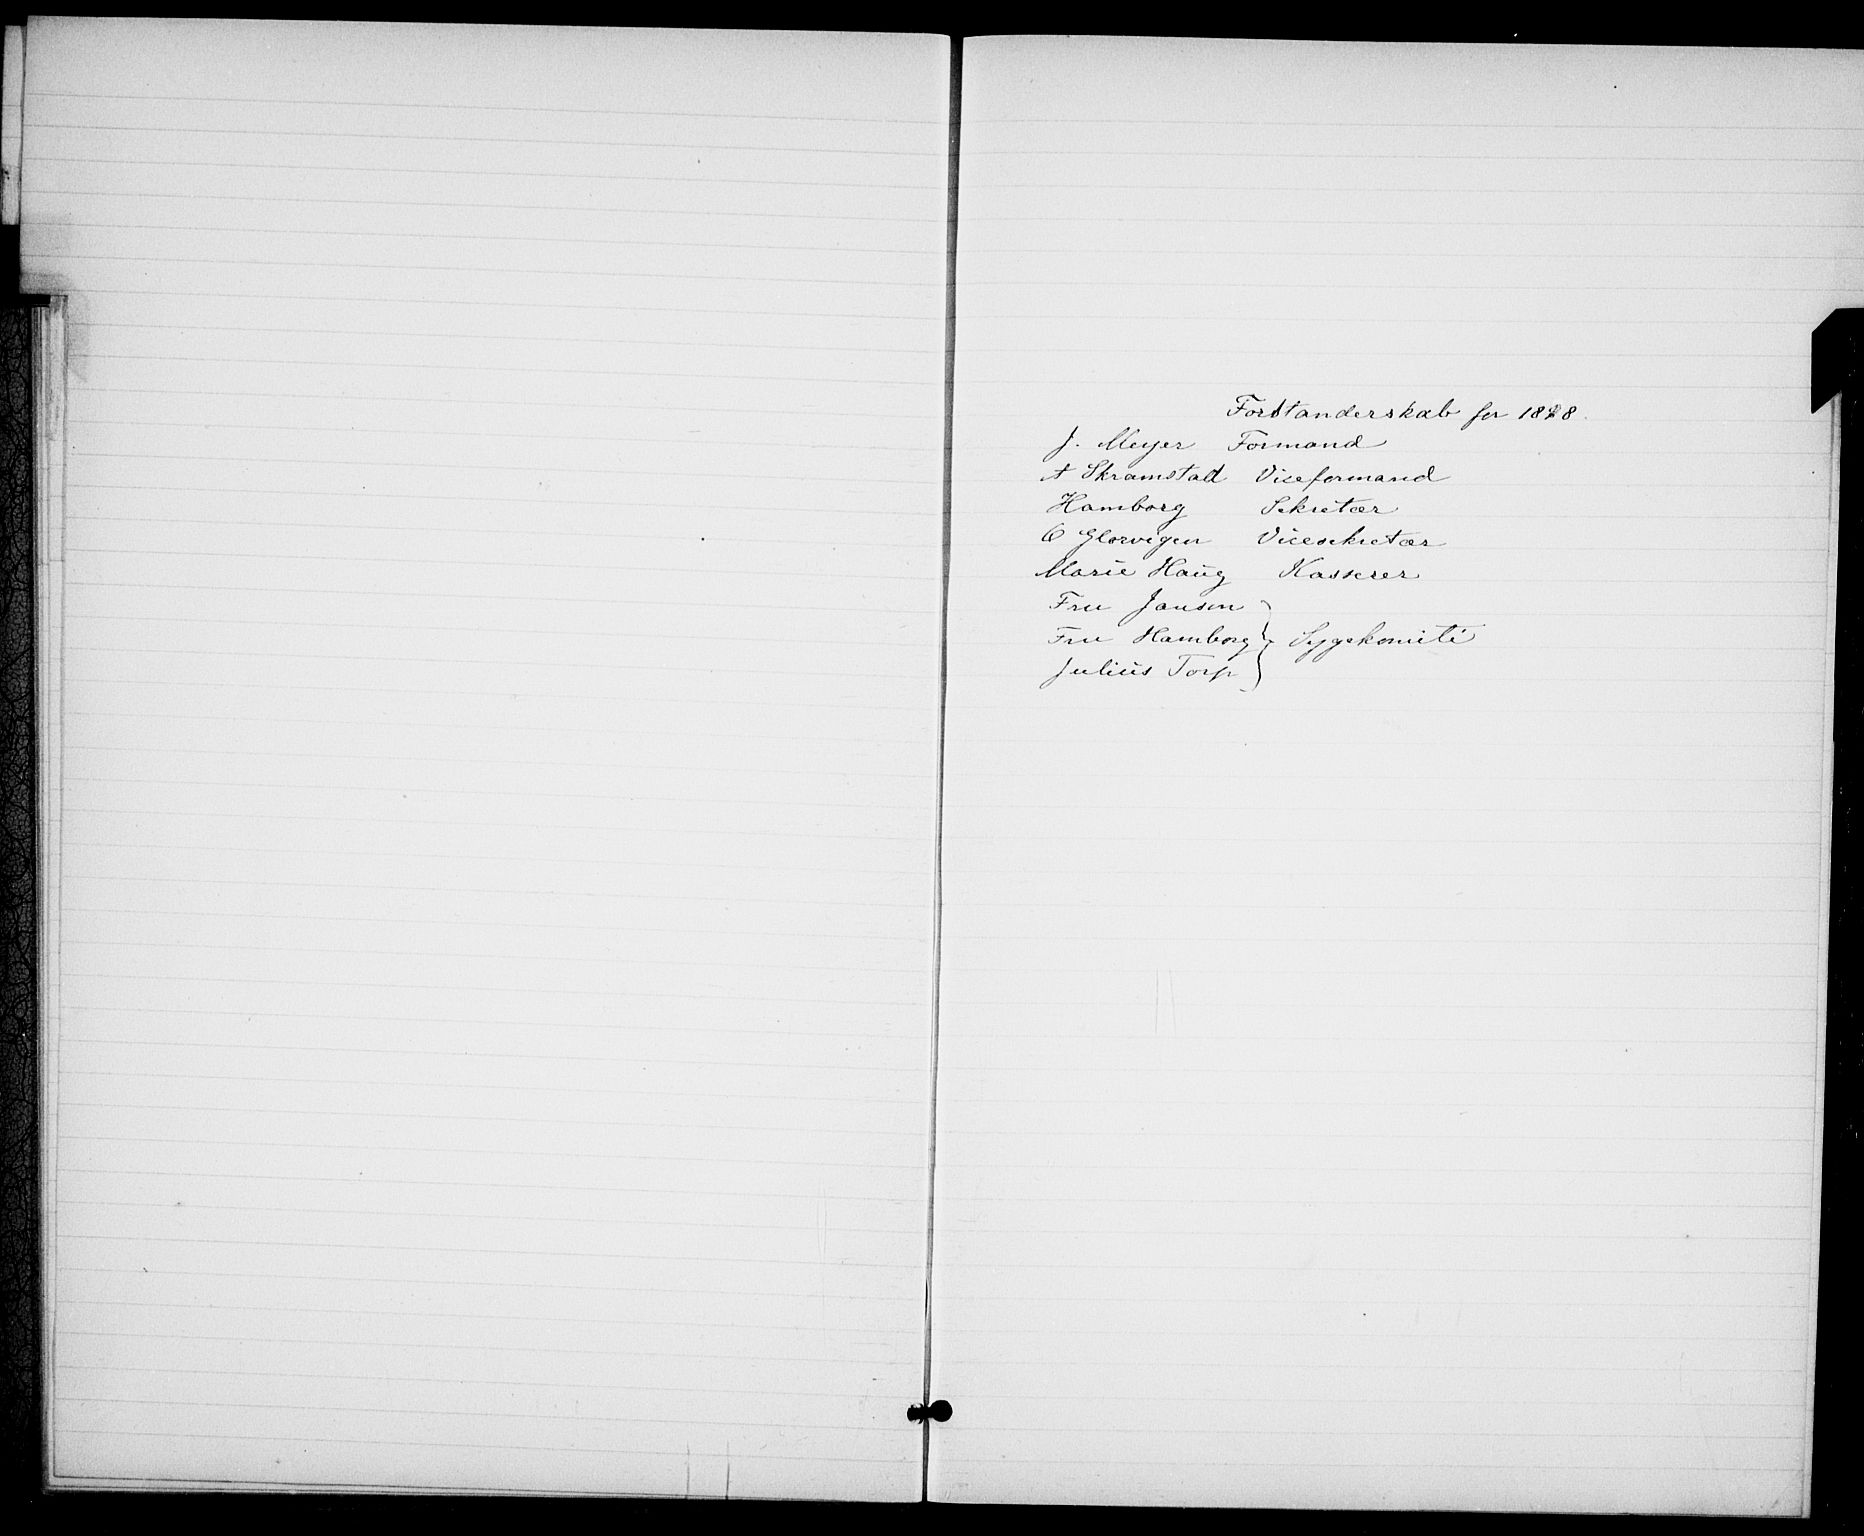 Forstanderskab for 1898.
J. Meyer Formand
A Skramstad Viceformand
Hamborg Sekretær
O Glorvigen Vicesekretær
Marie Haug Kasserer
Fru Jansen
Fru Hamborg Sygekomité
Julius Torp